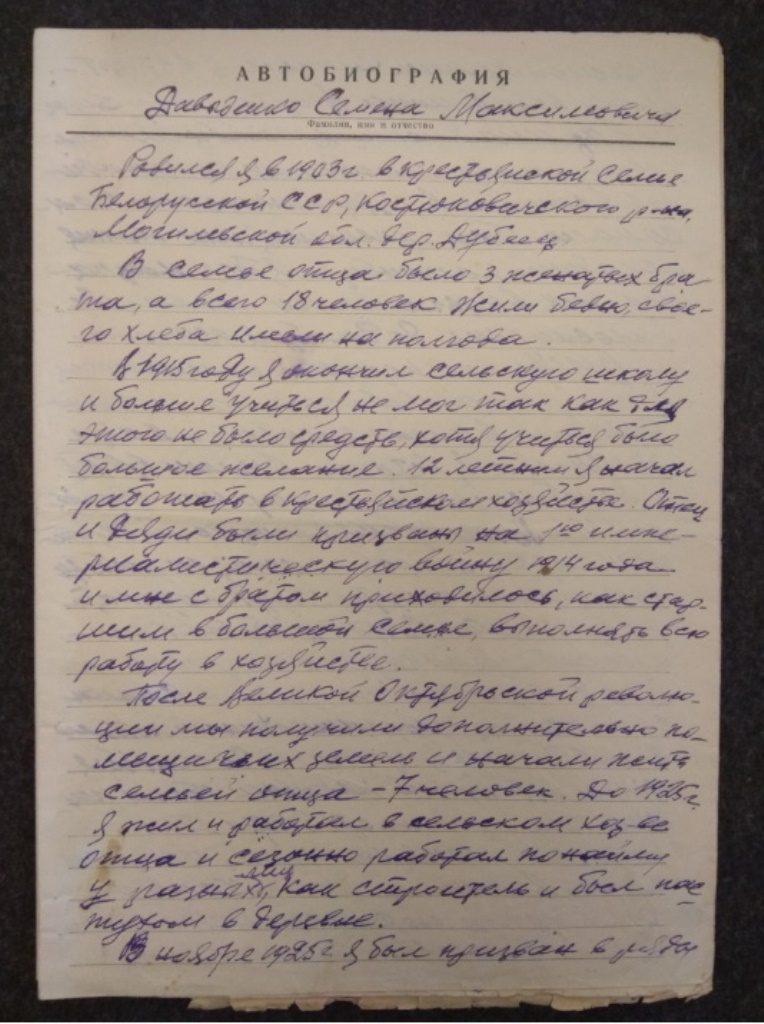 АВТОБИОГРАФИЯ
Давыденко Семена Максимовича
Фамилия, имя и отчество
Родился я в 1903 г. в крестьянской семье
Белорусской ССР, Костюковичского р-на,
Могилевской обл. дер. Дубеец
В семье отца было 3 женатых бра-
та, а всего 18 человек. Жили бедно, свое-
го хлеба имели на полгода.
В 1915 году я окончил сельскую школу
и больше учиться не мог так как для
этого не было средств, хотя учиться было
большое желание. 12 летним я начал
работать в крестьянском хозяйстве. Отец
и дяди были призваны на 1ю импе-
риалистическую войну 1914 года
и мне с братом приходилось, как стар-
шим в большой семье, выполнять всю
работу в хозяйстве.
После Великой Октябрьской револю-
ции мы получили дополнительно по-
мещичьих земель и начали жить
семьей отца - 7 человек. До 1925 г.
я жил и работал в сельском хоз-ве
отца и сезонно работал по найму
у разных лиц, как строитель и был пас-
тухом в деревне.
В ноябре 1925 г я был призван в ряды